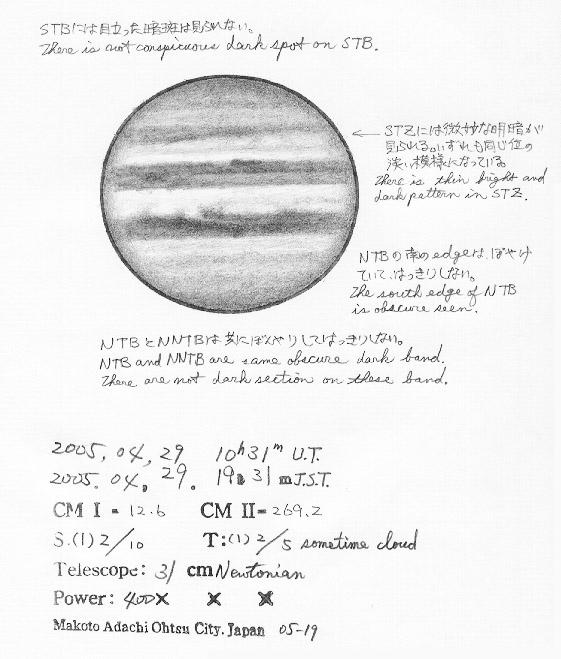 STBには目立った暗斑は見られない。
There is not conspicuous dark spot on STB.
STZには微妙な明暗が
見られる。いずれも同じ位の
淡い模様になっている。
There is thin bright and
dark pattern in STZ.
NTBの南のedgeは、ぼやけ
ていて、はっきりしない。
The south edge of NTB
is obscure seen.
NTBとNNTBは共にぼんやりしてはっきりしない。
NTB and NNTB are same obscure dark band.
There are not dark section on these band.
2005, 04, 29 10h31m U.T.
2005. 04, 29. 19h 31 m J.S.T.
CM I = 12.6 CM II= 269.2
S.(1) 2/10 T:(1) 2/5 sometime cloud
Telescope: 31 cm Newtonian
Power: 400X X X
Makoto Adachi Ohtsu City. Japan 05-19